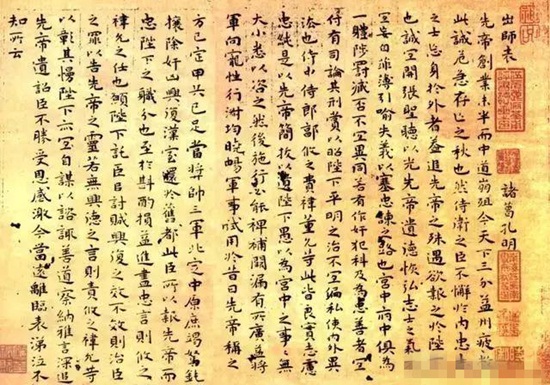 出師表 諸葛孔明
先帝創業未半而中道崩殂今天下三分益州疲敝
此誠危急存亡之秋也然侍衛之臣不懈於內忠志
之士忘身於外者蓋追先帝之殊遇欲報之於陛下
也誠宜開張聖聽以光先帝遺德恢弘志士之氣不
宜妄自菲薄引喻失義以塞忠諫之路也宮中府中俱為
一體陟罰臧否不宜異同若有作奸犯科及為忠善者宜
付有司論其刑賞以昭陛下平明之治不宜偏私使內外異
法也侍中侍郎郭攸之費禕董允等此皆良實志慮
忠純是以先帝簡拔以遺陛下愚以為宮中之事事無
大小悉以咨之然後施行必能裨補闕漏有所廣益將
軍向寵性行淑均曉暢軍事試用於昔日先帝稱之
方已定甲兵已足當將帥三軍北定中原庶竭駑鈍
攘除奸凶興復漢室還於舊都此臣所以報先帝而
忠陛下之職分也至於斟酌損益進盡忠言則攸之
禕允之任也願陛下託臣以討賊興復之效不效則治臣
之罪以告先帝之靈若無興德之言則責攸之禕允等
以彰其慢陛下亦宜自謀以諮諏善道察納雅言深追
先帝遺詔臣不勝受恩感激今當遠離臨表涕泣不
知所云